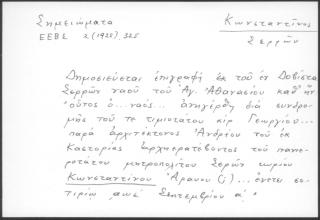 Σημειώματα
Κωνσταντῖνος
ΕΕΒΣ 2 (1925) 325
Σερρῶν
Δημοσιεύεται ἐπιγραφή ἐκ τοῦ ἐν Δοβίστα
Σερρῶν ναοῦ τοῦ Ἁγ. Ἀθανασίου καθ' ἥν
"οὗτος ὁ...ναός... ἀνηγέρθη διά συνδρο-
μῆς τοῦ τε τιμιοτάτου κίρ Γεωργίου...
παρά ἀρχιτέκτονος Ἀνδρέου τοῦ ἐκ
Καστορίας ἀρχιερατεύοντος τοῦ πανιε-
ροτάτου μητροπολίτου Σερῶν κυρίου
Κωνσταντίνου (;) ... ἔνετει σο-
τιρίω Σεπτεμβρίου α'."